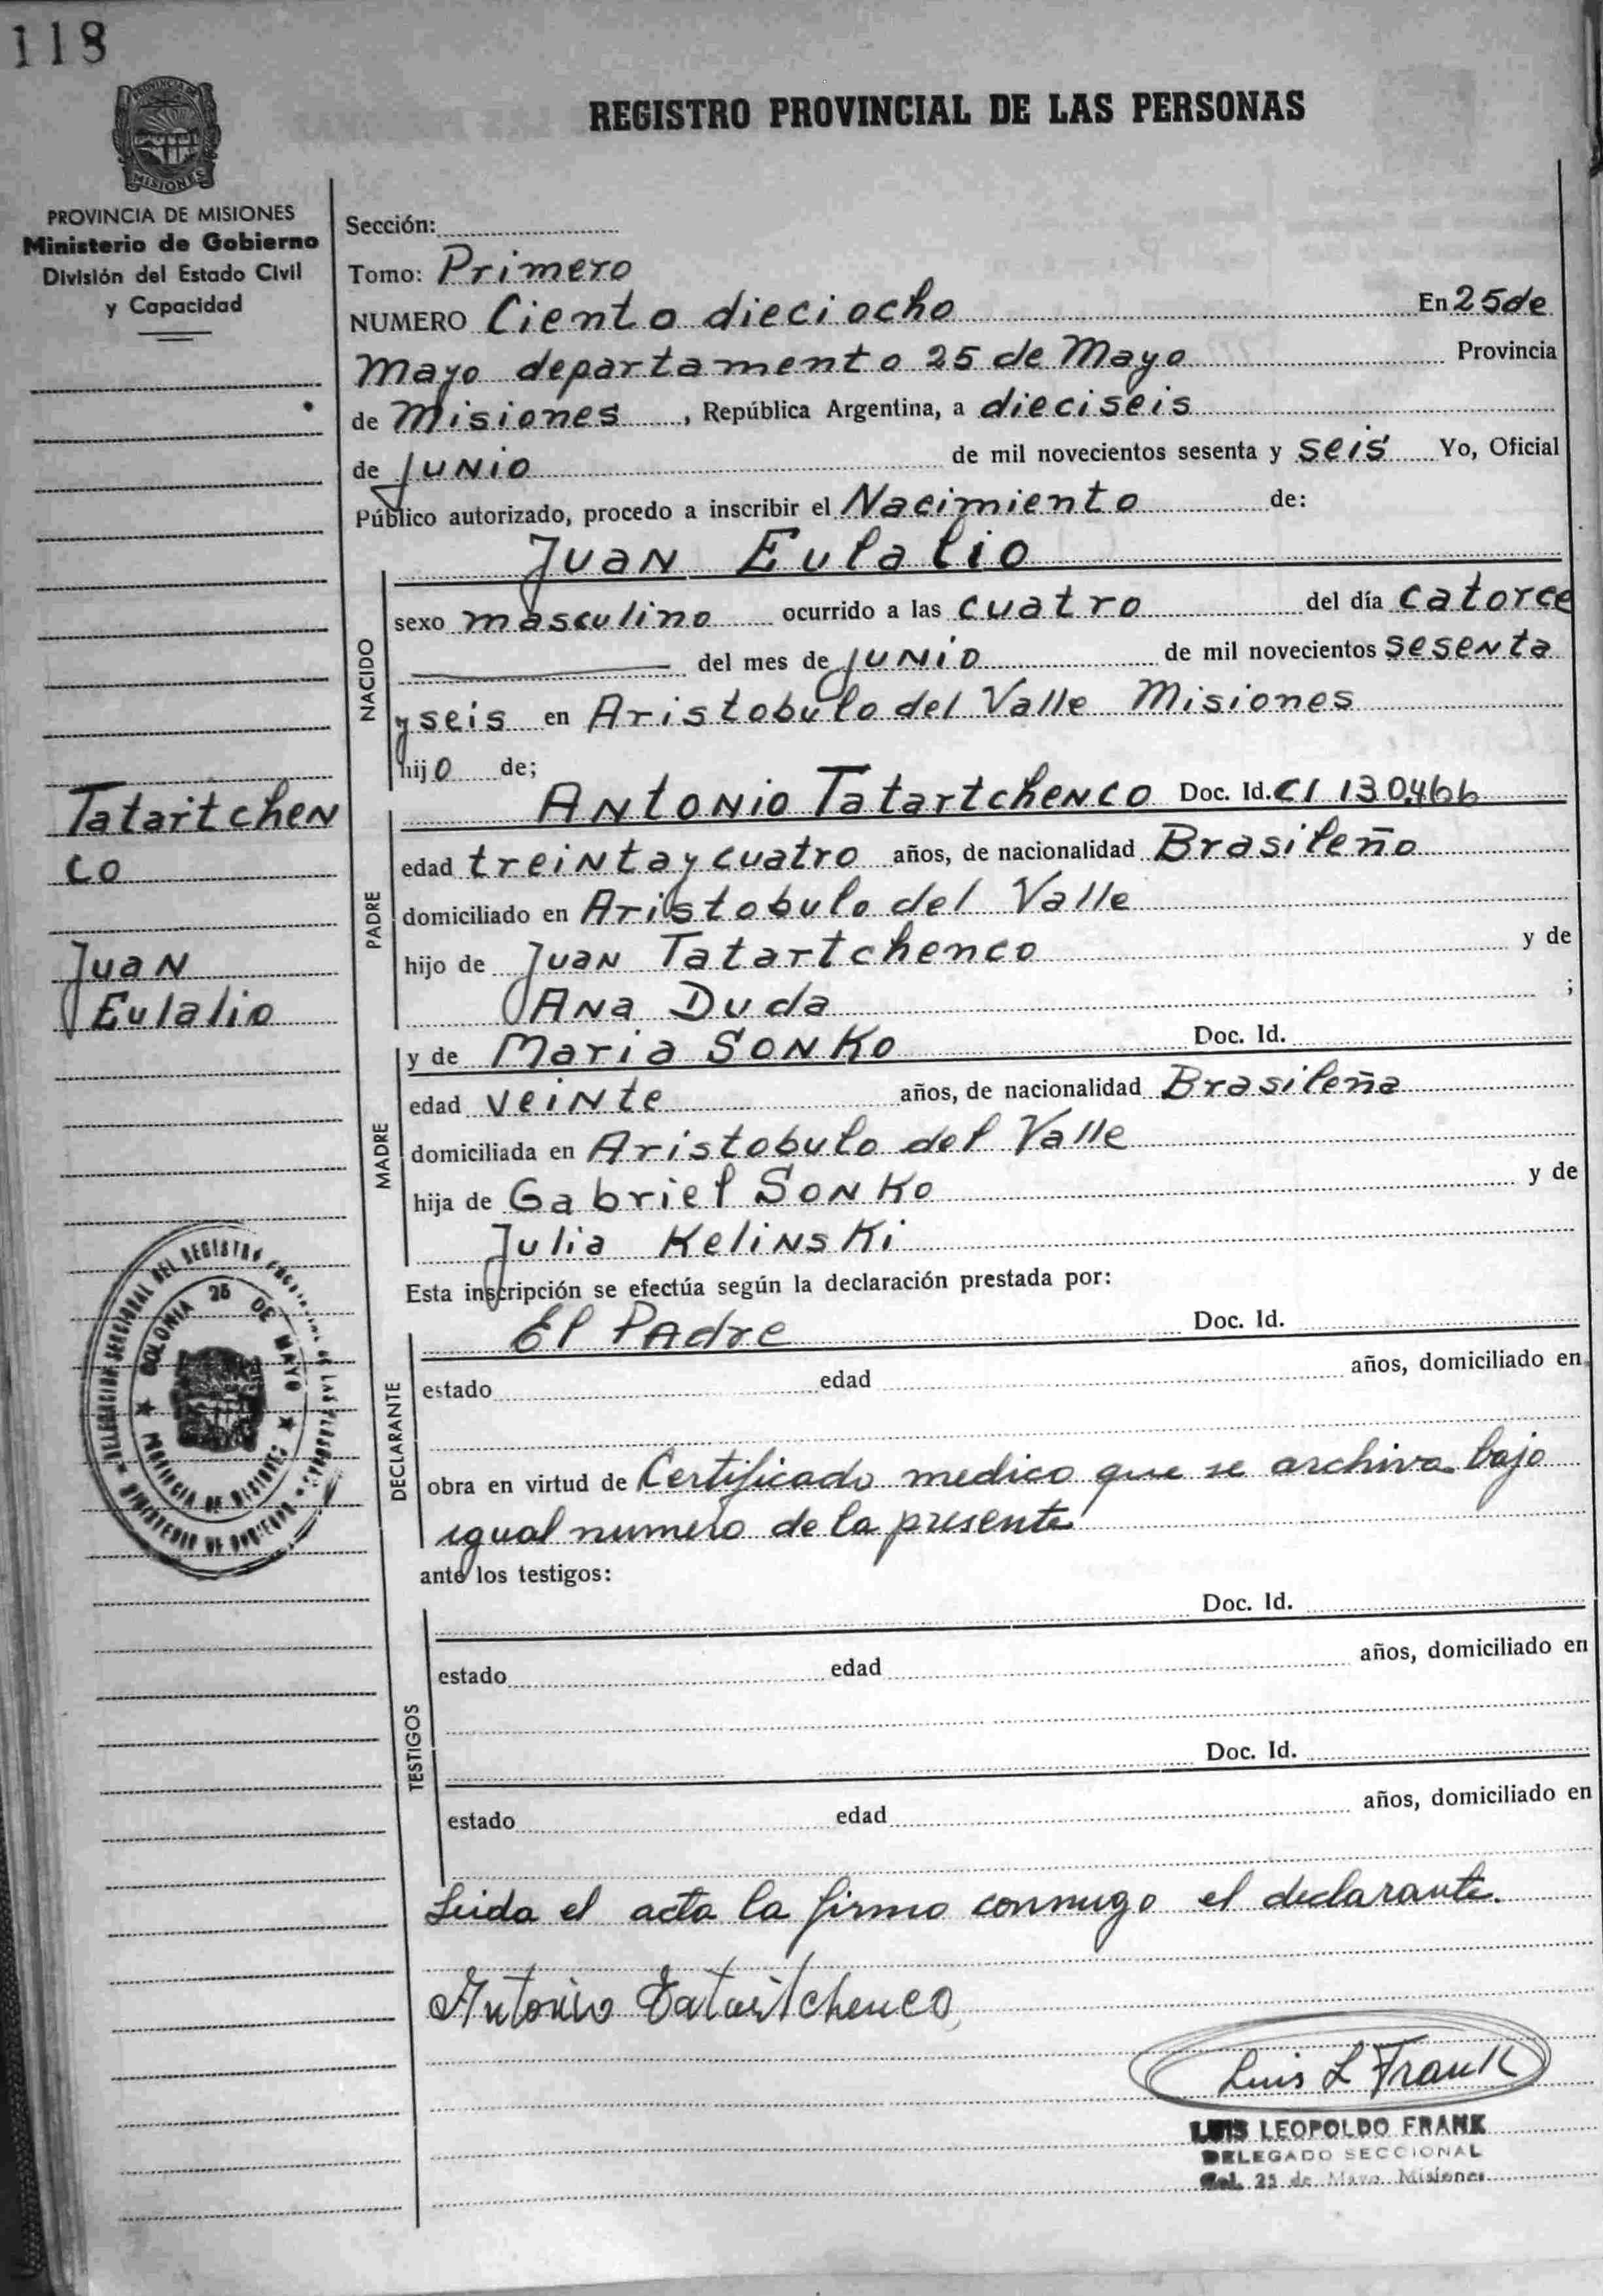 118
REGISTRO PROVINCIAL DE LAS PERSONAS
PROVINCIA DE
MISIONES
PROVINCIA DE MISIONES
Ministerio de Gobierno
División del Estado Civil
y Capacidad
Sección:
Tomo: Primero
NUMERO Ciento dieciocho En 25 de
Mayo departamento 25 de Mayo Provincia
de Misiones, República Argentina, a dieciseis
de Junio de mil novecientos sesenta y seis Yo, Oficial
Público autorizado, procedo a inscribir el Nacimiento de:
Juan Eulalio
NACIDO
sexo masculino ocurrido a las cuatro del día catorce
del mes de Junio de mil novecientos sesenta
y seis en Aristobulo del Valle Misiones
hijo de;
Tatartchen
co
Juan
Eulalio
PADRE
Antonio Tatartchenco Doc. Id. CI 130466
edad treinta y cuatro años, de nacionalidad Brasileño
domiciliado en Aristobulo del Valle
hijo de Juan Tatartchenco y de
Ana Duda ;
MADRE
y de Maria Sonko Doc. Id.
edad veinte años, de nacionalidad Brasileña
domiciliada en Aristobulo del Valle
hija de Gabriel Sonko y de
Julia Kelinski
Esta inscripción se efectúa según la declaración prestada por:
DECLARANTE
El Padre Doc. Id.
estado edad años, domiciliado en
obra en virtud de Certificado medico que se archiva bajo
igual numero de la presente
DELEGACION SECCIONAL DEL REGISTRO PROVINCIAL DE LAS PERSONAS
MINISTERIO DE GOBIERNO
COLONIA 25 DE MAYO
PROVINCIA DE MISIONES
ante los testigos:
TESTIGOS
Doc. Id.
estado edad años, domiciliado en
Doc. Id.
estado edad años, domiciliado en
Leida el acta la firmo conmigo el declarante.
Antonio Tatartchenco
Luis L Frank
LUIS LEOPOLDO FRANK
DELEGADO SECCIONAL
Col. 25 de Mayo. Misiones